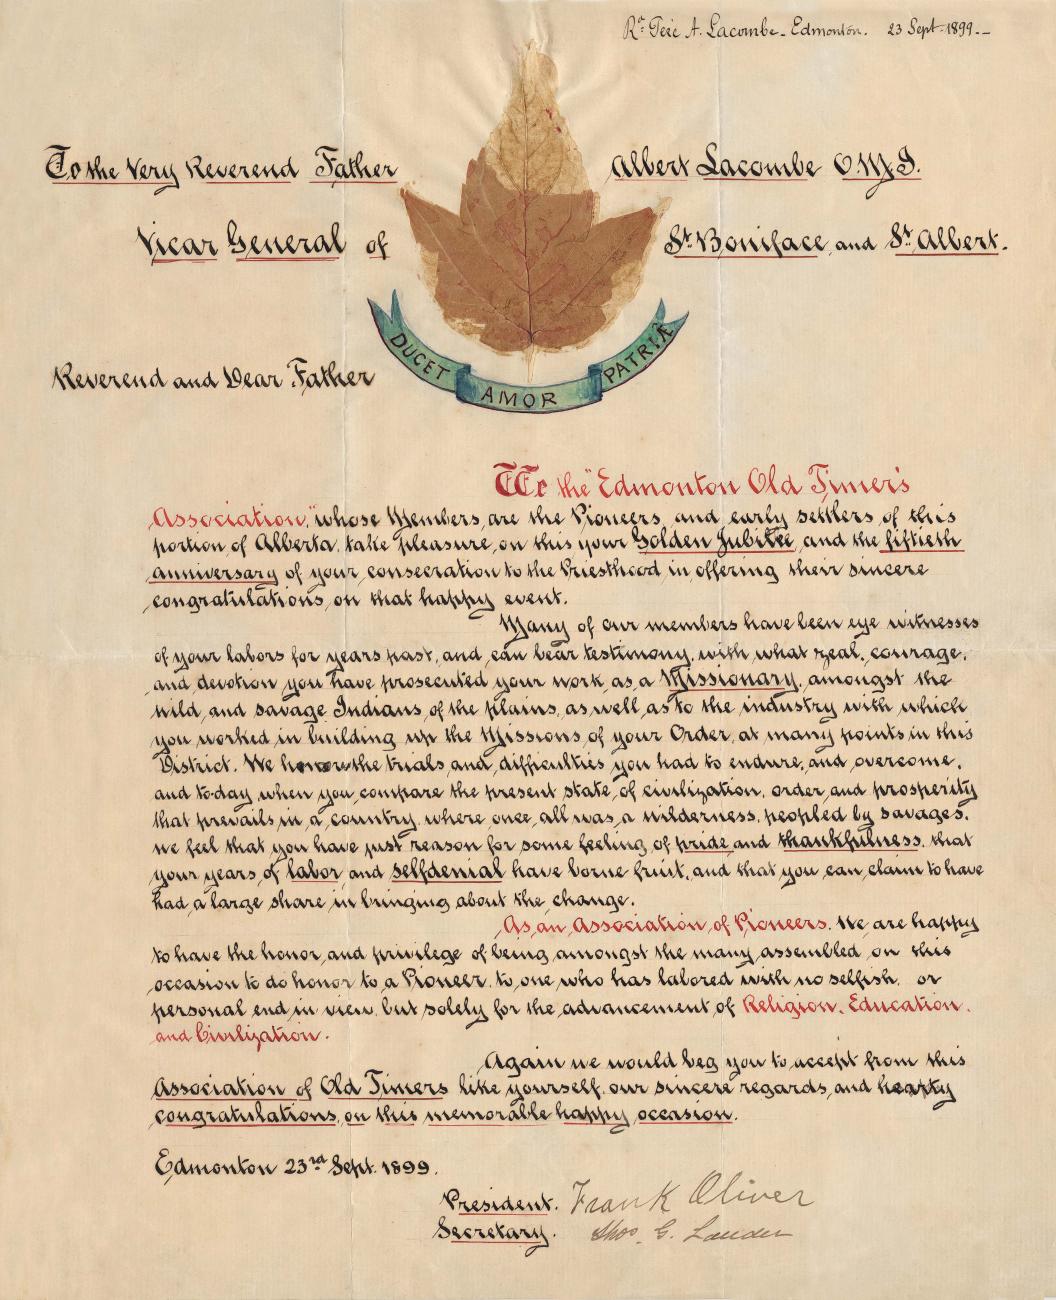 Rd Père A. Lacombe - Edmonton. 23 Sept. 1899.-
To the Very Reverend Father Albert Lacombe O.M.J.
Vicar General of St. Boniface and St. Albert.
DUCET AMOR PATRIÆ
Reverend and Dear Father
We the "Edmonton Old Timer's
Association," whose Members, are the Pioneers, and early settlers, of this
portion of Alberta, take pleasure, on this your Golden Jubilee, and the fiftieth
anniversary of your consecration to the Priesthood, in offering their sincere
congratulations, on that happy event.
Many of our members have been eye witnesses
of your labors for years past, and can bear testimony, with what zeal, courage,
and devotion, you have prosecuted your work, as a Missionary, amongst the
wild, and savage Indians, of the plains, as well, as to the industry with which
you worked in building up the Missions, of your Order, at many points in this
District. We know the trials, and difficulties you had to endure, and overcome,
and to-day when you compare the present state, of civilization, order and prosperity
that prevails, in a country, where once, all was, a wilderness, peopled by savages,
we feel that you have just reason for some feeling of pride and thankfulness, that
your years, of labor and selfdenial have borne fruit, and that you can claim to have
had a large share in bringing about the change.
As an Association, of Pioneers, We are happy
to have the honor and privilege of being amongst the many assembled on this
occasion to do honor to a Pioneer, to one who has labored with no selfish, or
personal end in view, but solely for the advancement of Religion, Education,
and Civilization.
Again we would beg you to accept from this
Association of Old Timers like yourself, our sincere regards, and hearty
congratulations, on this memorable happy occasion.
Edmonton 23rd Sept. 1899.
President. Frank Oliver
Secretary. Thos. G. Lauder